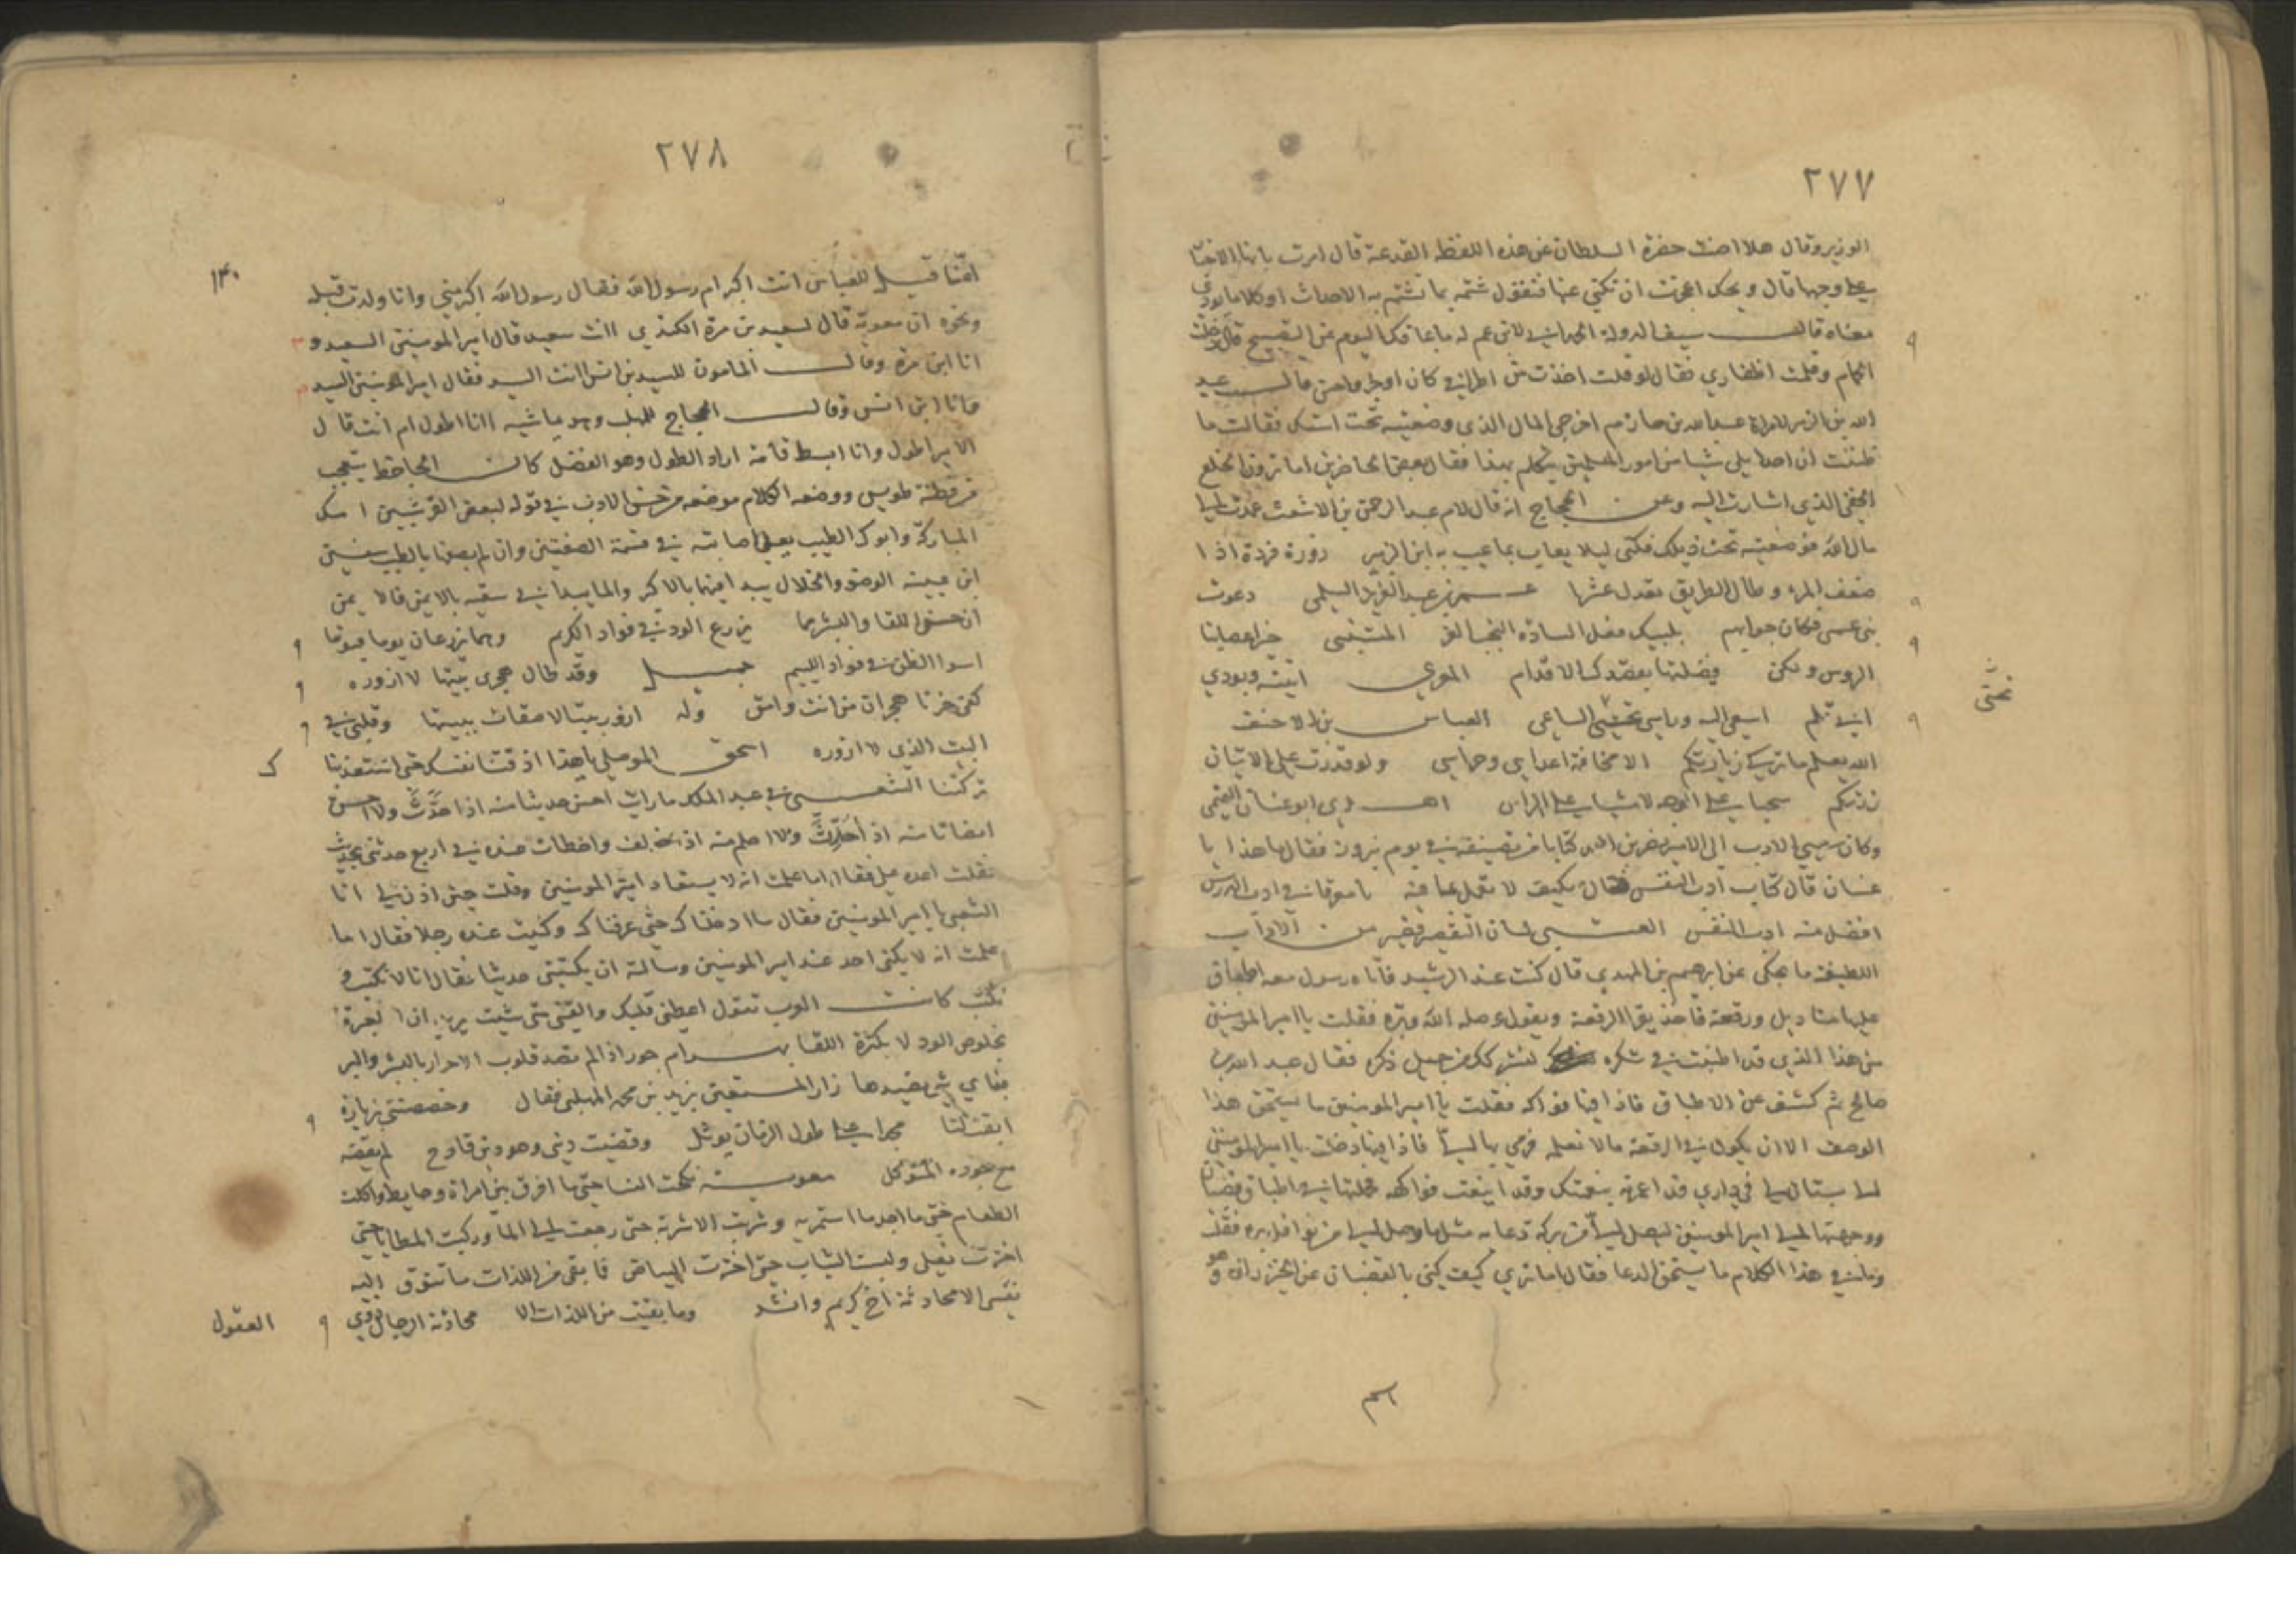 ٢٧٧
الوزير وقال هلا صنت حضرة السلطان عن هذه اللفظه القدعة قال امرت بانهاء الاخبار
على وجهها قال ويحك اعجزت ان تكني عنها فتقول شتمه بما تشتم به الاحداث او كلاما يودي
معناه قال سيف الدولة الحمداني لابن عم له ما عاقك اليوم عن الصبح قال دخلت
الحمام وقلمت اظفاري فقال لو قلت اخذت من اطرافي كان اوجز واحسن قال عبد
الله بن الزبير لامراة عبد الله بن حازم اخرجي المال الذي وضعتيه تحت استك فقالت ما
ظننت ان احدا يلي شيا من امور المسلمين يتكلم بهذا فقال بعض الحاضرين اما ترون الخلع
الخفي الذي اشارت اليه وعن الحجاج انه قال لام عبد الرحمن بن الاشعث عمدت الى
مال الله فوضعتيه تحت ذيلك فكنى ليلا يعاب بما عيب به ابن الزبير زورة فردة اذا
ضعف المرء وطال الطريق تعدل عشرا عمر بن عبد العزيز السلمي دعوت
بني عمي فكان جوابهم بلبيك فعل السادة النجبا الغر المتنبي خير اعضاينا
الروس ولكن فضلتها بقصدك الاقدام المعري اتيته وبودي
اني قلم اسعى اليه وراسي تحتي الساعي العباس بن الاحنف
تحتي
الله يعلم ما تركي زيارتكم الا مخافة اعداي وحراسي ولو قدرت على الاتيان
زرتكم سحبا على الوجه لا مشيا على الراس اهدى ابو غسان التميمي
وكان سمي الادب الى الامير نصر بن احمد كتابا من تصنيفه في يوم نيروز فقال ما هذا يا
غسان قال كتاب ادب النفس قال فكيف لا تعمل بما فيه
افضل منه ادب النفس العتبي لسان التقصير قصير من الاداب
اللطيفة ما يحكى عن ابرهيم بن المهدي قال كنت عند الرشيد فاتاه رسول معه اطباق
عليها مناديل ورقعة فاخذ يقرا الرقعة ويقول وصله الله وبره فقلت يا امير المومنين
من هذا الذي قد اطنبت في شكره لنشركك في جميل ذكره فقال عبد الملك بن
صالح ثم كشف عن الاطباق فاذا فيها فواكه فقلت يا امير المومنين ما يستحق هذا
الوصف الا ان يكون في الرقعة ما لا نعلمه فرمى بها اليّ فاذا فيها دخلت يا امير المومنين
الى بستان لي في داري قد اعمرته بنعمتك وقد اينعت فواكهه فحملتها في اطباق قضبان
ووجهتها الى امير المومنين ليصل اليّ من بركة دعائه مثل ما وصل اليّ من نوافل بره فقلت
وليس في هذا الكلام ما يستحق الدعا فقال اما ترى كيف كنى بالقضبان عن الخيزران وهو
٢٧٨
١٤٠
امنا قيل للعباس انت اكبر ام رسول الله فقال رسول الله اكبر مني وانا ولدت قبله
ونحوه ان معوية قال لسعيد بن مرة الكندي اانت سعيد قال امير المومنين السعيد و
انا ابن مرة وقال المامون للسيد بن انس اانت السيد فقال امير المومنين السيد
وانا ابن انس وقال الحجاج للمهلب وهو يماشيه اانا اطول ام انت قال
الامير اطول وانا ابسط قامة اراد الطول وهو الفضل كان الجاحظ يتعجب
من فطنة طويس ووضعه الكلام موضعه من حسن الادب في قوله لبعض القرشيين امك
المباركة وابوك الطيب يعلى
ابن عيينه الوضو والخلال يبدا فيهما بالاكبر والما يبدا في سقيه بالايمن فالايمن
ان حسن اللقا والبشر مما يزرع الود في فواد الكريم وهما يزرعان يوما فيوما
اسوا الظن في فواد الليم جميل وقد طال هجري بيتها لا ازوره
كفى حزنا هجران من انت وامق وله ازور بيتا لاصقات ببيتها وقلبي في
البيت الذي لا ازوره اسحق الموصلي يا هذا اذقتنا نفسك حتى استعذبنا
تركتنا الشعبي في عبد الملك ما رايت احسن حديثا منه اذا حدّث ولا احسن
انصاتا منه اذا حُدّث ولا احلم منه اذا خولف واخطات عنده في اربع حدثني بحديث
فقلت اعده علي فقال اما علمت انه لا يستعاد امير المومنين وقلت حين اذن لي انا
الشعبي يا امير المومنين فقال ما ادخلناك حتى عرفناك وكنيت عنده رجلا فقال اما
علمت انه لا يكنى احد عند امير المومنين وسالته ان يكتبني حديثا فقال انا لا نكتب و
نكتب كانت العرب تقول اعطني قلبك والقني متى شيت يريد ان العبرة
بخلوص الود لا بكثرة اللقا بهرام جور اذا لم تصد قلوب الاحرار بالبشر والبر
فباي شي تصيدها زار المستعين يزيد بن محمد المهلبي فقال وخصصتني بزيارة
ابقت لنا مجدا على طول الزمان يوثل وقضيت ديني وهو دين فادح لم يقضه
مع جوده المتوكل معوية نكحت النسا حتى ما افرق بين امراة وحايط واكلت
الطعام حتى ما اجد ما استمريه وشربت الاشربة حتى رجعت الى الما وركبت المطايا حتى
اخترت نعلي ولبست الثياب حتى اخترت البياض فما بقي من اللذات ما تتوق اليه
نفسي الا محادثة اخ كريم وانشد وما بقيت من اللذات الا محادثة الرجال ذوي
العقول